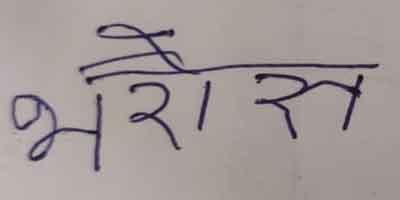 भरौस